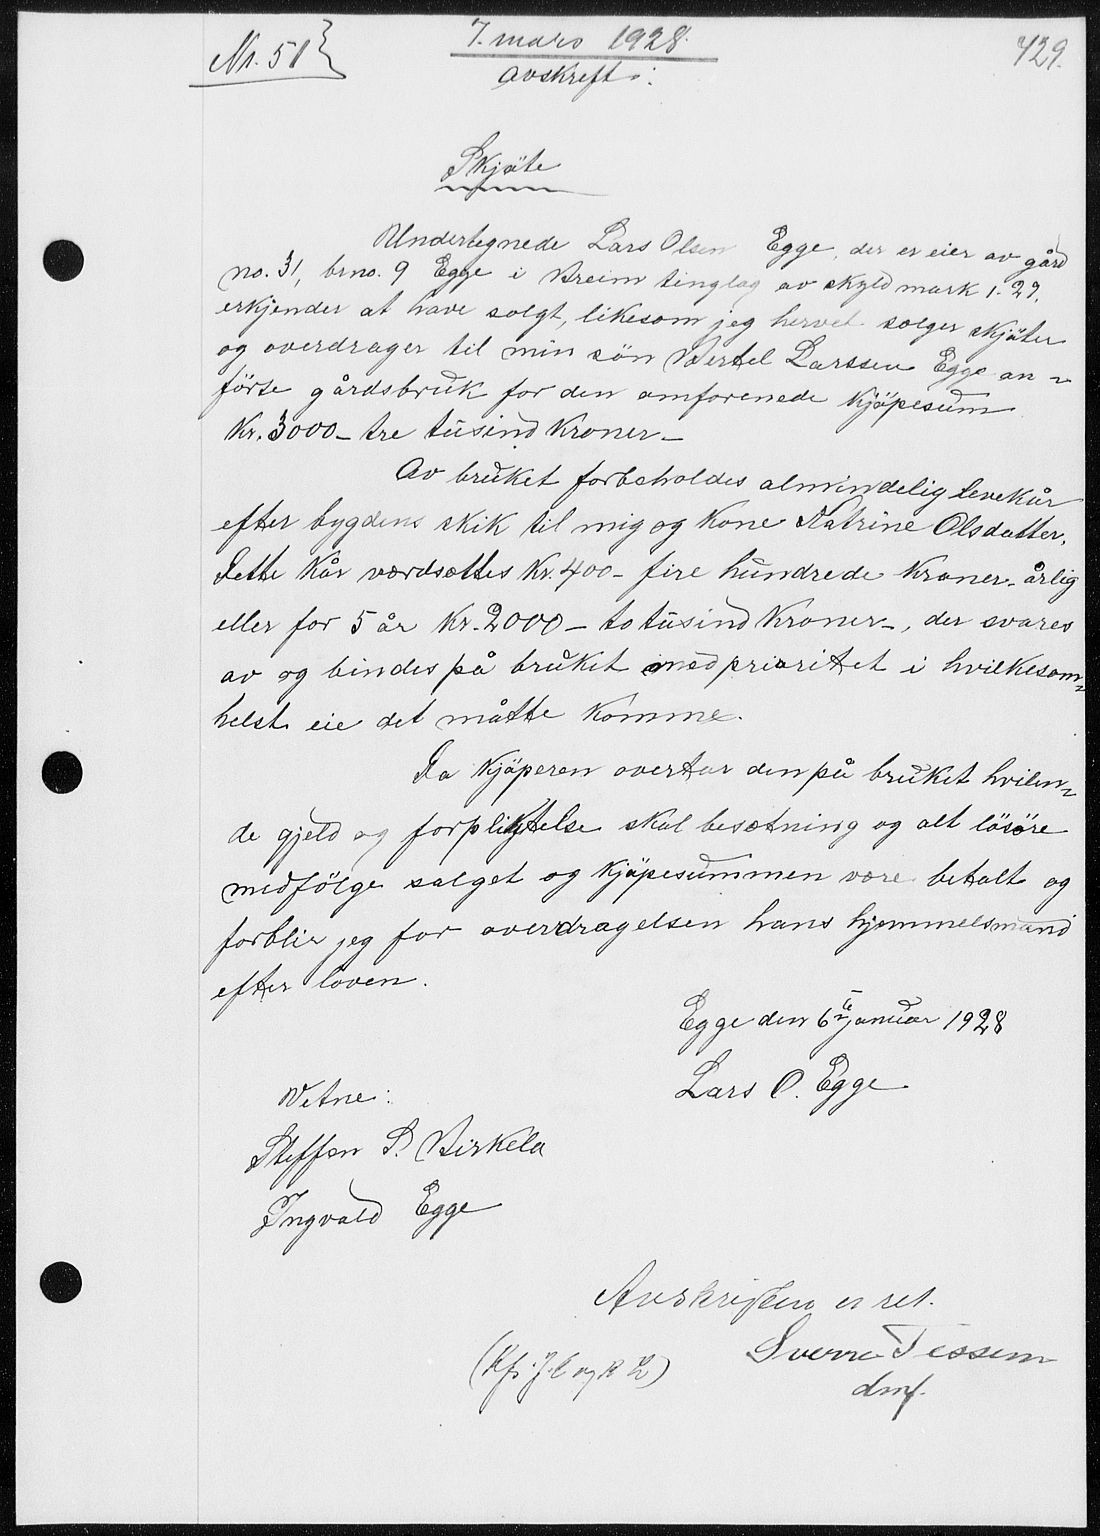 Nr. 51
7. mars 1928.
729.
Avskrift:
Skjøte
Undertegnede Lars Olsen Egge, der er eier av gård
no. 31, brno. 9 Egge i Breim tinglag av skyld mark 1.29,
erkjender at have solgt, likesom jeg herved sælger skjöter
og overdrager til min sön Bertel Larssen Egge an-
förte gårdsbruk for den omforenede kjöpesum
Kr. 3000- tre tusind kroner-
Av bruket forbeholdes almindelig levekår
efter bygdens skik til mig og kone Katrine Olsdatter.
Dette kår værdsættes Kr. 400- fire hundrede kroner- årlig
eller for 5 år Kr. 2000- to tusind kroner-, der svares
av og bindes på bruket med prioritet i hvilkesom-
helst eie det måtte komme.
Da kjöperen overtar den på bruket hvilen-
de gjeld og forpligtelse skal besætning og alt lösöre
medfölge salget og kjöpesummen være betalt og
forblir jeg for overdragelsen hans hjemmelsmand
efter loven.
Egge den 6te januar 1928
Lars O. Egge
Vetne:
Steffen S. Birkelo
Ingvald Egge
Avskriften er ret.
Sverre Tessem
dmf.